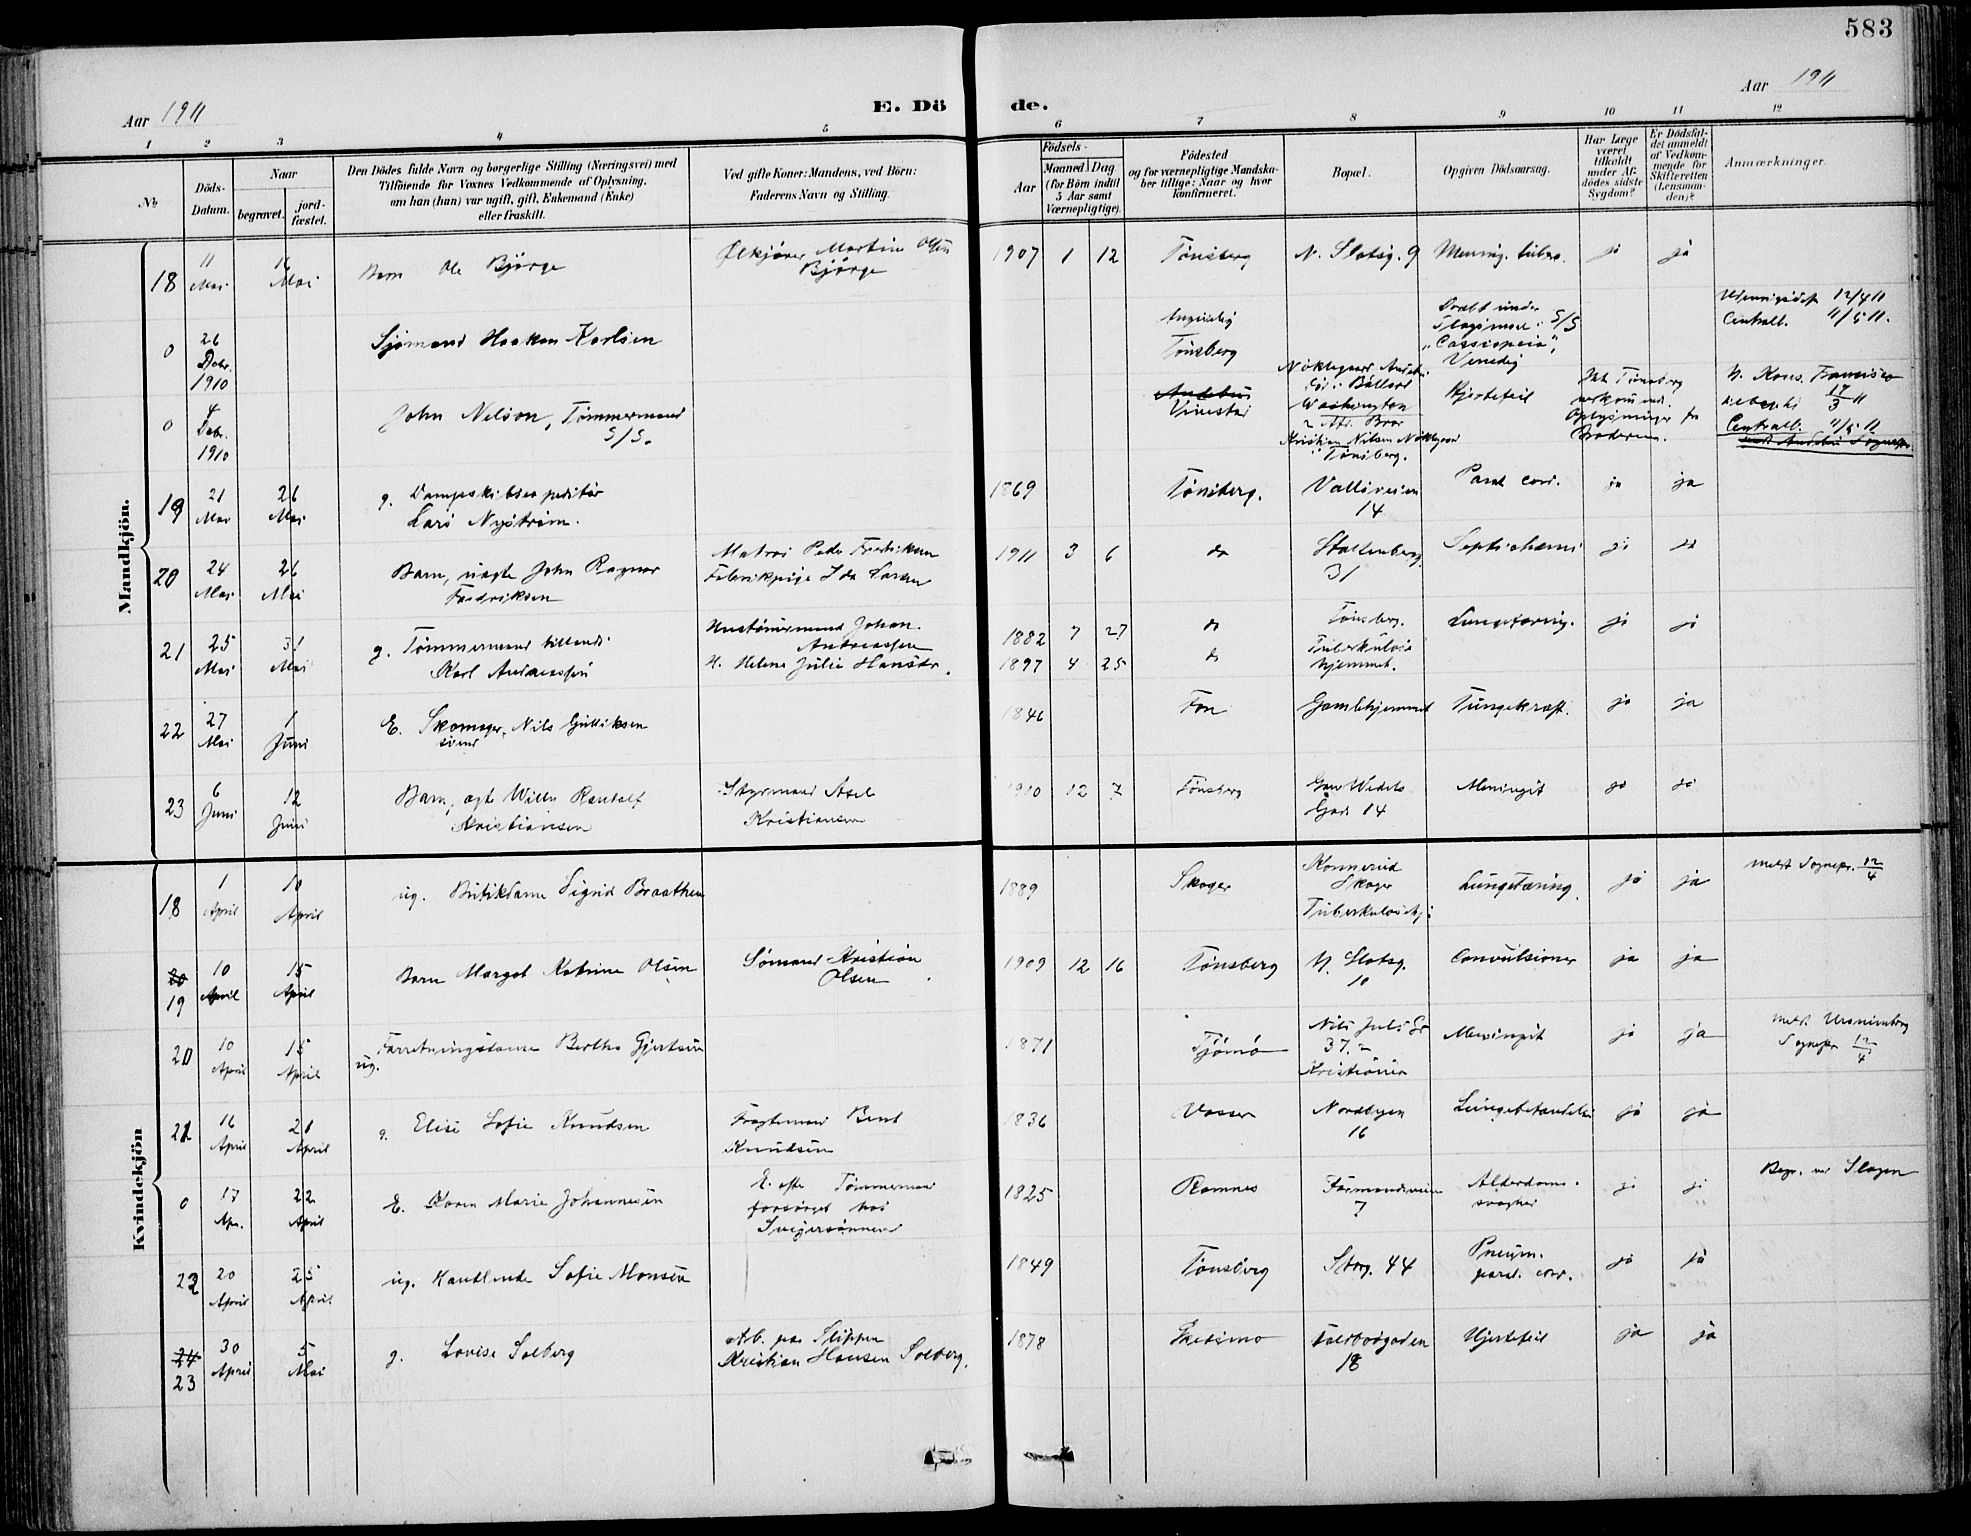 583
Aar 1911
E. Dö
de.
Aar 1911
1 2 3 4 5 6 7 8 9 10 11 12
№
Döds-
Datum.
Naar
begravet.
jord-
fæstet.
Den Dödes fulde Navn og borgerlige Stilling (Næringsvei) med
Tilföiende for Voxnes Vedkommende af Oplysning,
om han (hun) var ugift, gift, Enkemand (Enke)
eller fraskilt.
Ved gifte Koner: Mandens, ved Börn:
Faderens Navn og Stilling.
Födsels-
Aar
Maaned Dag
(for Börn indtil
5 Aar samt
Værnepligtige).
Födested
og for værnepligtige Mandska-
ber tillige: Naar og hvor
konfirmeret.
Bopæl.
Opgiven Dödsaarsag.
Har Læge
været
tilkaldt
under Af-
dödes sidste
Sygdom?
Er Dödsfal-
det anmeldt
af Vedkom-
mende for
Skifteretten
(Lensman-
den)?
Anmærkninger.
Mandkjön.
18 11 Mai 16 Mai Barn Ole Bjørge Ølkjører Martin Olsen Bjørge 1907 1 12 Tönsberg N. Slotsg. 9 Mening. tuberc. ja ja
0 26 Debr. 1910 Sjømand Haakon Karlsen Angivelig Tønsberg Dræbt under Slagsmaal i S/S "Cassiopeia", Venedig 12/4 11 Centralb. 11/5 11.
0 4 Debr. 1910 John Nelson, Tømmermand S/S. Andebu Vivestad Washington Bror Kristian Nilsen Nøklegaard Tønsberg. Hjertefeil Oplysninger fra Broderen. N. Kons. Francisco 17/3 11 Centralb. 11/5 11
19 21 Mai 26 Mai g. Dampskibsexpeditør Lars Nystrøm. 1869 Tønsberg. Valløveien 14 Paral. cord. ja ja
20 24 Mai 26 Mai Barn, uægte John Ragnar Fredriksen Matros Peder Fredriksen Fabrikpige Ida Larsen 1911 3 6 do Stoltenberg 31 Septichæmi ja ja
21 25 Mai 31 Mai g. Tømmermand tillends Karl Andreassen Hustømermand Johan Andreassen H. Helene Julie Hansdr. 1882 7 27 do 1897 4 25 do Tønsberg. Tuberkulosehjemmet. Lungetæring. ja ja
22 27 Mai 1 Juni E. Skomagersvend Nils Gulliksen 1846 Fon Gamlehjemmet Tungekræft. ja ja
23 6 Juni 12 Juni Barn, ægt Willy Randolf Kristiansen Styrmand Axel Kristiansen 1910 12 7 Tønsberg Grev Wedels Gade 14 Meningit ja ja
Kvindekjön
18 1 April 10 April ug. Butikdame Sigrid Braathen 1889 Skoger Konnerud Skoger Tuberkulosehj. Lungetæring. ja ja meldt Sognepr. 12/4
20 19 10 April 15 April Barn Margot Katrine Olsen Sømand Kristian Olsen 1909 12 16 Tønsberg N. Slotsg. 10 Convulsioner ja ja
20 10 April 15 April ug. Forretningsdame Bertha Gjertsen 1871 Tjømø Nils Juls Gd 37, Kristiania Meningit ja ja meldt Uranienborg Sognepr. 12/4
21 16 April 21 April g. Elise Sofie Knudsen Fragtemand Bent Knudsen 1836 Vasser Nordbyen 16 Lungebetændelse ja ja
0 17 Apr. 22 April E. Karen Marie Johannesen E. efter Tømmermand forsørget hos Svigersønnen 1825 Ramnes Farmandsveien 7 Alderdomssvaghed ja ja Begr. ved Slagen
22 20 April 25 April ug. Handlende Sofie Monsen 1849 Tønsberg Storg. 44 Pneum. paral. cord. ja ja
24 23 30 April 5 Mai g. Lovise Solberg Arb. paa Slippen Kristian Hansen Solberg. 1878 Skedsmo Tolbodgaden 18 Hjertefeil ja ja